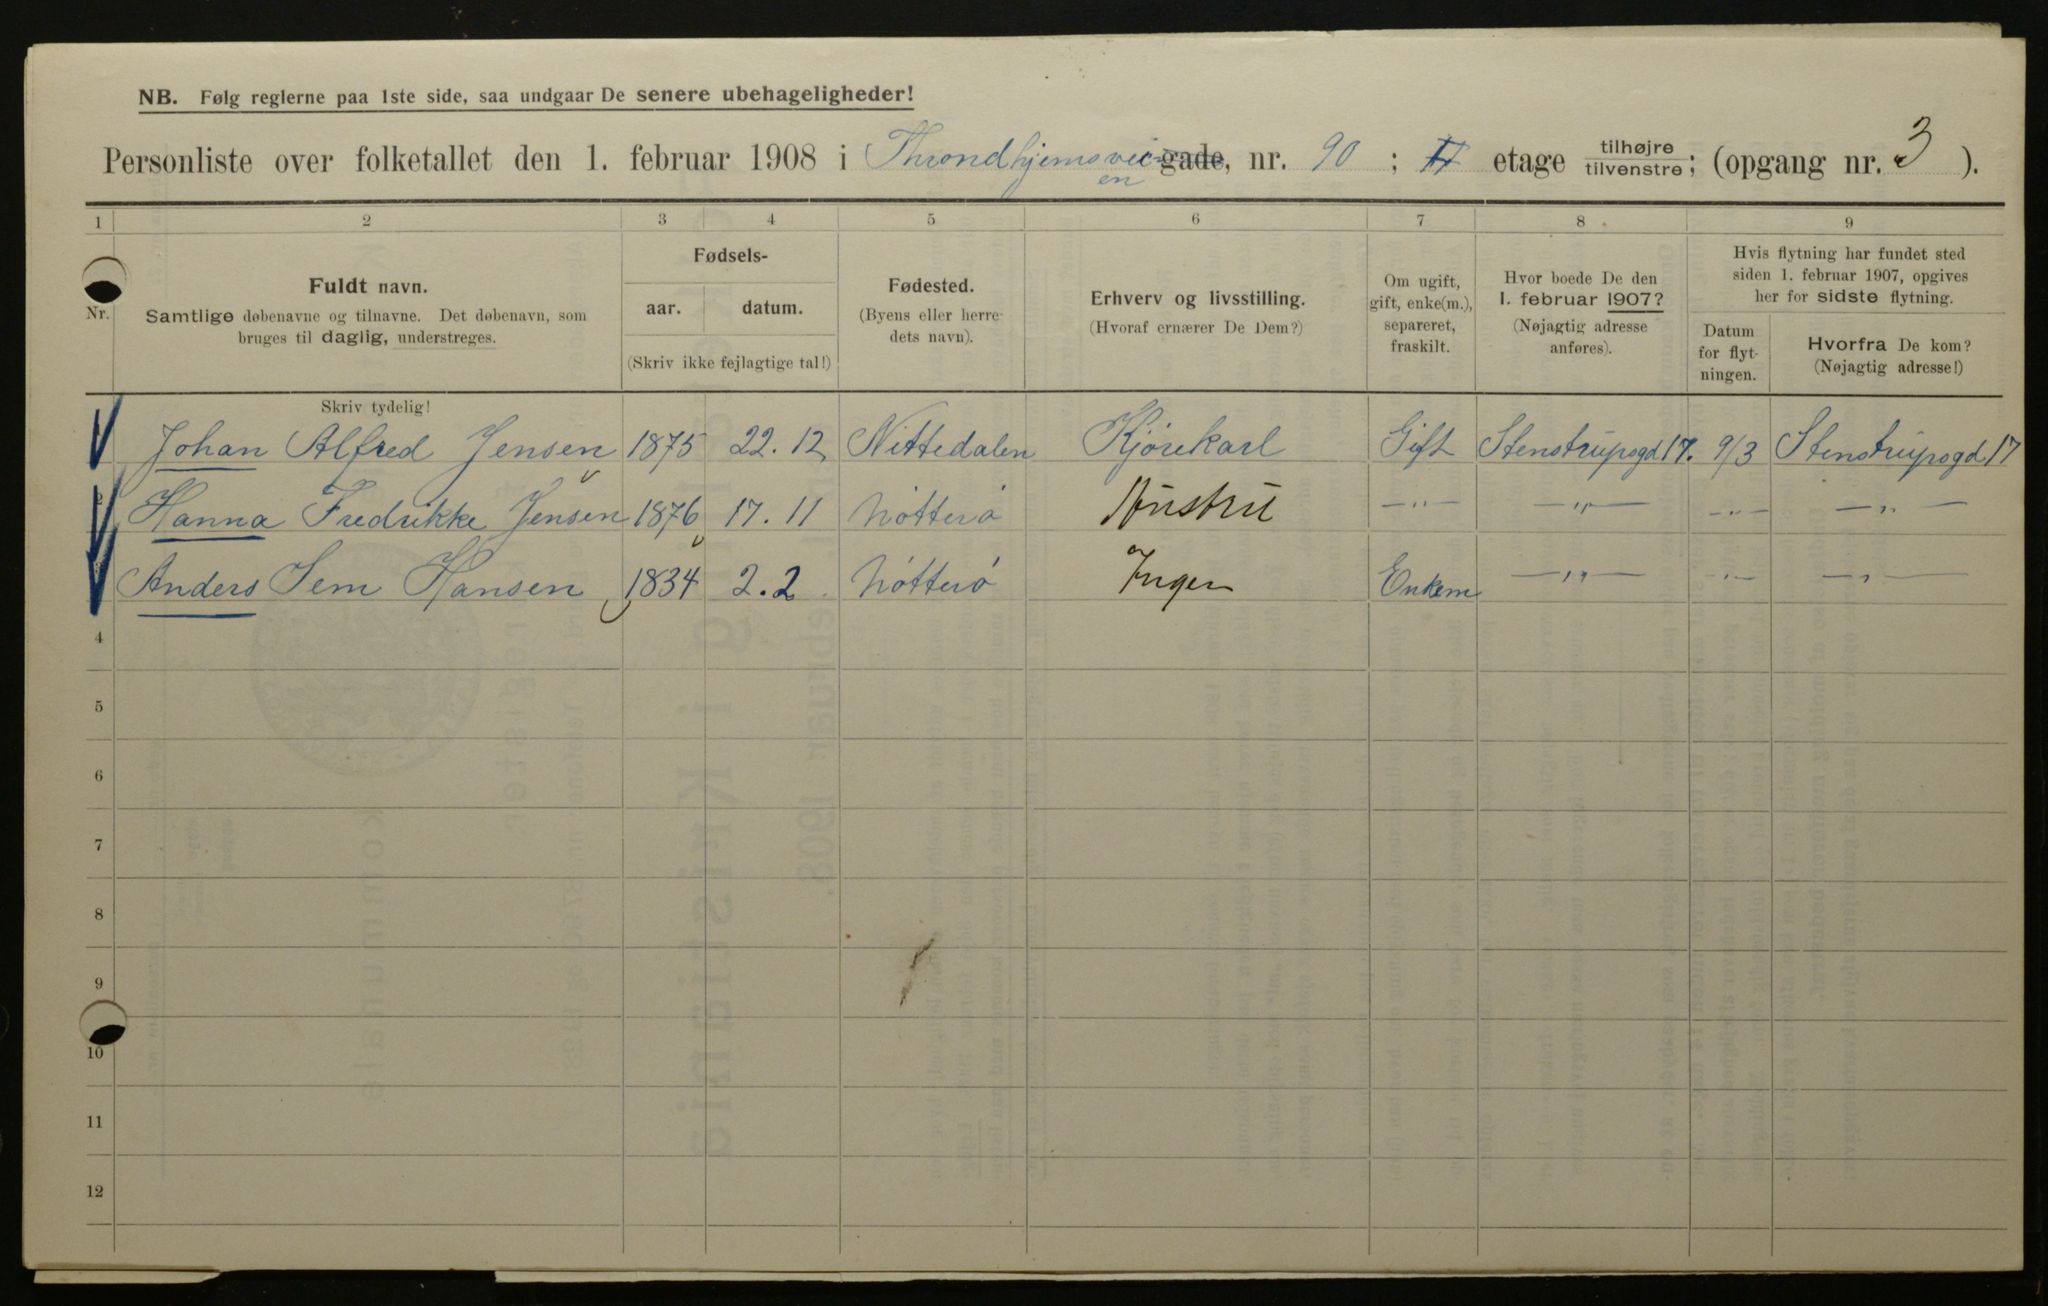 NB. Følg reglerne paa 1ste side, saa undgaar De senere ubehageligheder!
Personliste over folketallet den 1. februar 1908 i Throndhjemsveien gade, nr. 90 ; II etage tilhøjre / tilvenstre; (opgang nr. 3 ).
1 2 3 4 5 6 7 8 9
Nr. Fuldt navn. Samtlige døbenavne og tilnavne. Det døbenavn, som bruges til daglig, understreges.
Fødsels- aar. datum. (Skriv ikke fejlagtige tal!)
Fødested. (Byens eller herredets navn).
Erhverv og livsstilling. (Hvoraf ernærer De Dem?)
Om ugift, gift, enke(m.), separeret, fraskilt.
Hvor boede De den 1. februar 1907? (Nøjagtig adresse anføres).
Hvis flytning har fundet sted siden 1. februar 1907, opgives her for sidste flytning.
Datum for flytningen.
Hvorfra De kom? (Nøjagtig adresse!)
Skriv tydelig!
Johan Alfred Jensen 1875 22. 12 Nittedalen Kjørekarl Gift Stenstrupsgd 17. 9/3 Stenstrupsgd 17
Hanna Fredrikke Jensen 1876 17. 11 Nøtterø Hustru —"— —"— —"— —"—
Anders Sem Hansen 1834 2. 2 Nøtterø Ingen Enkem —"— —"— —"—
4
5
6
7
8
9
10
11
12